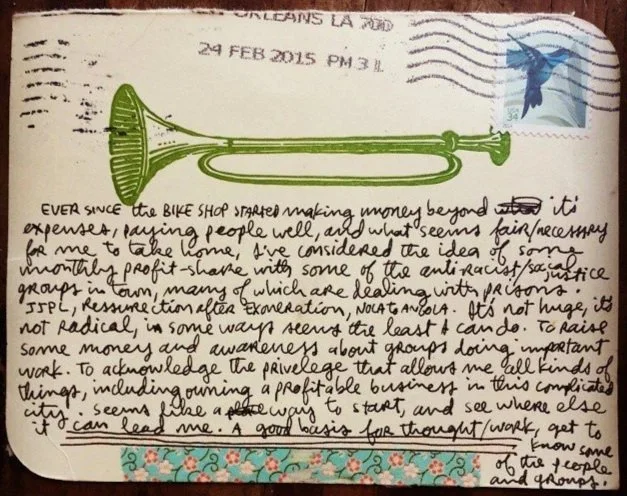 ORLEANS LA 700
24 FEB 2015 PM 3 L
USA
34
EVER SINCE the BIKE SHOP STARTED making money beyond it's
expenses, paying people well, and what seems fair/necessary
for me to take home, I've considered the idea of some
monthly profit-share with some of the anti-racist/social justice
groups in town, many of which are dealing with prisons.
JJPL, Ressurection after Exoneration, NOLA to ANGOLA. It's not huge, it's
not radical, in some ways seems the least I can do. To raise
some money and awareness about groups doing important
work. To acknowledge the privelege that allows me all kinds of
things, including owning a profitable business in this complicated
city. Seems like a way to start, and see where else
it can lead me. A good basis for thought/work, get to
know some
of the people
and groups.